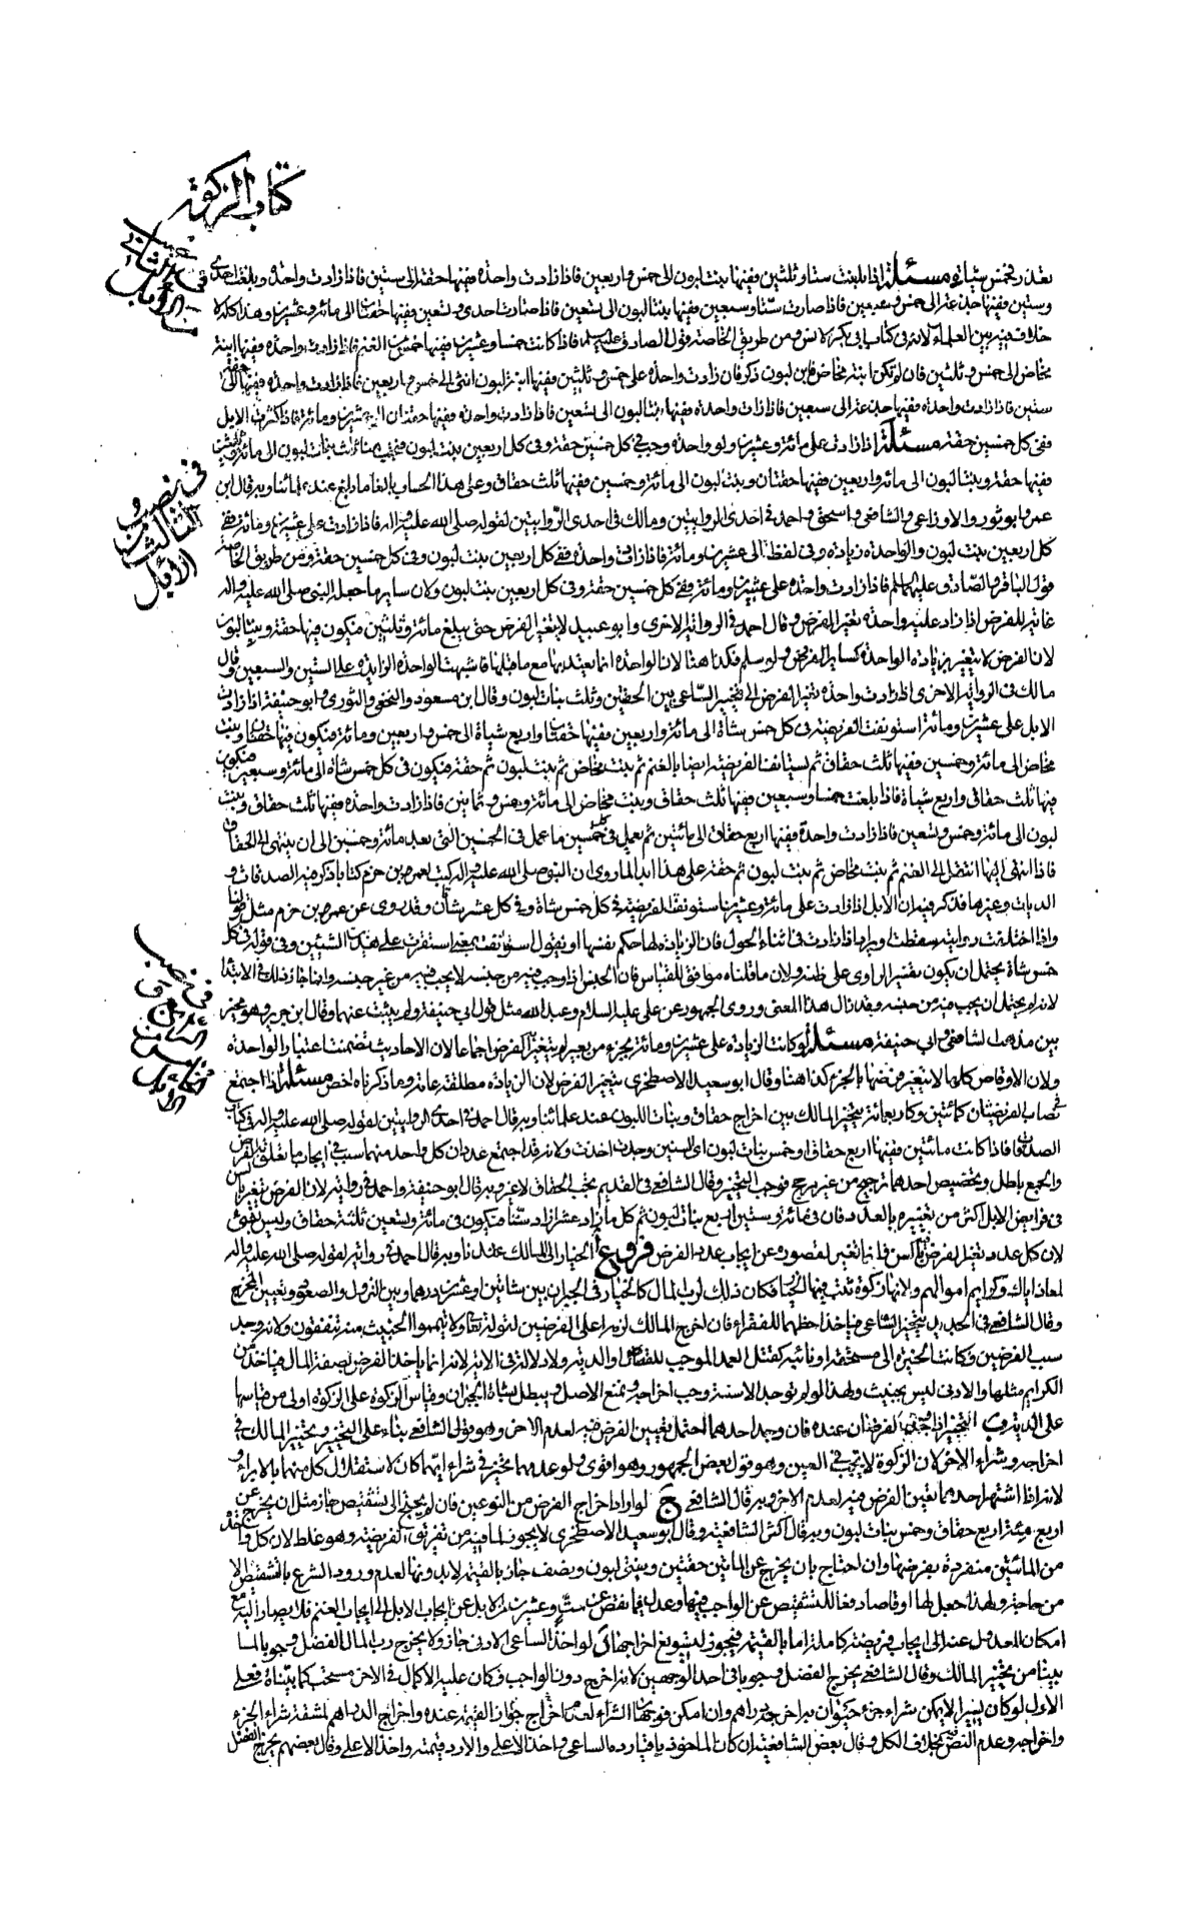 كتاب الزكوة
في نصب الثاني من الأقل
بعد في خمس شياه مسئلة اذا بلغت ستا وثلثين ففيها بنت لبون الى خمس واربعين فاذا زادت واحدة ففيها حقة الى ستين فاذا زادت واحدة وبلغت احدى
وستين ففيها جذعة الى خمس وسبعين فاذا صارت ستا وسبعين ففيها بنتا لبون الى تسعين فاذا صارت احدى وتسعين ففيها حقتان الى مائة وعشرين وهذا كله لا
خلاف فيه بين العلماء لانه في كتاب ابي بكر لانس ومن طريق الخاصة قول الصادق عليه السلم فاذا كانت خمسا وعشرين ففيها خمس من الغنم فاذا زادت واحدة ففيها ابنة
مخاض الى خمس وثلثين فان لم تكن ابنة مخاض فابن لبون ذكر فان زادت واحدة على خمس وثلثين ففيها ابنة لبون انثى الى خمس واربعين فاذا زادت واحدة ففيها حقة الى
ستين فاذا زادت واحدة ففيها جذعة الى سبعين فاذا زادت واحدة ففيها بنتا لبون الى تسعين فاذا زادت واحدة ففيها حقتان الى عشرين ومائة فاذا كثرت الابل
ففي كل خمسين حقة مسئلة اذا زادت على مائة وعشرين ولو واحدة وجب في كل خمسين حقة وفي كل اربعين بنت لبون فتجب هنا ثلث بنات لبون الى مائة وثلثين
ففيها حقة وبنتا لبون الى مائة واربعين ففيها حقتان وبنت لبون الى مائة وخمسين ففيها ثلث حقاق وعلى هذا الحساب بالغا ما بلغ عند علمائنا وبه قال ابن
عمر وابو ثور والاوزاعي والشافعي واسحق واحمد في احدى الروايتين ومالك في احدى الروايتين لقوله صلى الله عليه واله فاذا زادت على عشرين ومائة ففي
كل اربعين بنت لبون والواحدة زيادة وفي لفظ الى عشرين ومائة فاذا زادت واحدة ففي كل اربعين بنت لبون وفي كل خمسين حقة ومن طريق الخاصة
قول الباقر والصادق عليهما السلم فاذا زادت واحدة على عشرين ومائة ففي كل خمسين حقة وفي كل اربعين بنت لبون ولان سايرها جعله النبي صلى الله عليه واله
غاية للفرض اذا زاد عليه واحدة تغير الفرض وقال احمد في الرواية الاخرى وابو عبيد لا يتغير الفرض حتى يبلغ مائة وثلثين فيكون فيها حقة وبنتا لبون
لان الفرض لا يتغير بزيادة الواحدة كساير الفروض ولو سلم فكذا هنا لان الواحدة انما يعتد بها مع ما قبلها فاشبهت الواحدة الزايدة على الستين والسبعين وقال
مالك في الرواية الاخرى اذا زادت واحدة تغير الفرض الى تخيير الساعي بين الحقتين وثلث بنات لبون وقال ابن مسعود والنخعي والثوري وابو حنيفة اذا زادت
الابل على عشرين ومائة استونفت الفريضة في كل خمس شاة الى مائة واربعين ففيها حقتان واربع شياة الى خمس واربعين ومائة فيكون فيها حقتان وبنت
مخاض الى مائة وخمسين ففيها ثلث حقاق ثم تستانف الفريضة ايضا بالغنم ثم بنت مخاض ثم بنت لبون ثم حقة فيكون في كل خمس شاة الى مائة وسبعين فيكون
فيها ثلث حقاق واربع شياة فاذا بلغت خمسا وسبعين ففيها ثلث حقاق وبنت مخاض الى مائة وخمس وثمانين فاذا زادت واحدة ففيها ثلث حقاق وبنت
لبون الى مائة وخمس وتسعين فاذا زادت واحدة ففيها اربع حقاق الى مائتين ثم يعمل في كل خمسين ما عمل في الخمسين التي بعد مائة وخمسين الى ان ينتهى الى الحقاق
فاذا انتهى اليها انتقل الى الغنم ثم بنت مخاض ثم بنت لبون ثم حقة على هذا ابدا لما روي ان النبي صلى الله عليه واله كتب لعمرو بن حزم كتابا ذكر فيه الصدقات و
الديات وغيرها فذكر فيه ان الابل اذا زادت على مائة وعشرين استونفت الفريضة في كل خمس شاة وفي كل عشر شاتان وقد روى عن عمرو بن حزم مثل قولنا
واذا اختلفت روايته سقطت او يراد بها اذا زادت في اثناء الحول فان الزيادة لها حكم نفسها او يقول استونفت بمعنى استقرت على هذين السنين وفي قوله في كل
خمس شاة يحتمل ان يكون تفسير الراوي على ظنه ولان ما قلناه موافق للقياس فان الجنس اذا وجب فيه من جنسه لا يجب فيه من غير جنسه وانما جاز ذلك في الابتداء
لانه لم يحتمل ان يجب فيه من جنسه وقد زال هذا المعنى وروى الجمهور عن علي عليه السلام وعبد الله مثل قول ابي حنيفة ولم يثبت عنهما وقال ابن جرير هو مخير
بين مذهب الشافعي وابي حنيفة مسئلة لو كانت الزيادة على عشرين ومائة بجزء من بعير لم يتغير الفرض اجماعا لان الاحاديث تضمنت اعتبار الواحدة
ولان الاوقاص كلها لا يتغير فرضها بالجزء كذا هنا وقال ابو سعيد الاصطخري يتغير الفرض لان الزيادة مطلقة عامة وما ذكرناه اخص مسئلة اذا اجتمع
في نصاب الفرضتان كمائتين وكاربعمائة يتخير المالك بين اخراج حقاق وبنات اللبون عند علمائنا وبه قال احمد في احدى الروايتين لقوله صلى الله عليه واله في كتاب
الصدقات فاذا كانت مائتين ففيها اربع حقاق او خمس بنات لبون اى السنين وجدت اخذت ولانه قد اجتمع عددان كل واحد منهما سبب في ايجاب ما تعلق به الفرض
والجمع باطل وتخصيص احدهما ترجيح من غير مرجح فوجب التخيير وقال الشافعي في القديم يجب الحقاق لا غير وبه قال ابو حنيفة واحمد في رواية لان الفرض تغير بالسن
في فرايض الابل اكثر من تغييره بالعدد فان في مائة وستين اربع بنات لبون ثم كل ما زاد عشرا زاد سنا فيكون في مائة وتسعين ثلثة حقاق وليس بقوى
لان كل عدد تغير الفرض بالسن فانما تغير لقصوره عن ايجاب عدد الفرض فروع أ الخيار الى المالك عندنا وبه قال احمد في رواية لقوله صلى الله عليه واله
لمعاذ اياك وكرايم اموالهم ولانها زكوة ثبت فيها الخيار فكان ذلك لرب المال كالخيار في الجبران بين شاتين او عشرين درهما وبين النزول والصعود وتعيين المخرج
وقال الشافعي في الجديد يتخير الساعي فياخذ احظهما للفقراء فان اخرج المالك لزمه اعلى الفرضين لقوله تعالى ولا تيمموا الخبيث منه تنفقون ولانه وجد
سبب الفرضين وكانت الخيرة الى مستحقه او نائبه كقتل العمد الموجب للقصاص والدية ولا دلالة في الاية لانه انما ياخذ الفرض بصفة المال فياخذ من
الكرايم مثلها والادنى ليس بخبيث ولهذا لو لم توجد الا سنه وجب اخراجه ونمنع الاصل ويبطل بشاة الجبران وقياس الزكوة على الزكوة اولى من قياسها
على الدية ب التخيير اذا اجتمعت الفرضتان عنده فان وجد احدهما احتمل تعيين الفرض فيه لعدم الاخر وهو قول الشافعي بناء على التخيير وتخيير المالك في
اخراجه وشراء الاخر لان الزكوة لا تجب في العين وهو قول بعض الجمهور وهو اقوى ولو عدمهما تخير في شراء ايهما كان لاستقلال كل منهما بالابراء و
لانه اذا اشترى احدهما تعين الفرض فيه لعدم الاخر وبه قال الشافعي ج لو اراد اخراج الفرض من النوعين فان لم يحتج الى تشقيص جاز مثل ان يخرج عن
اربع مئة اربع حقاق وخمس بنات لبون وبه قال اكثر الشافعية وقال ابو سعيد الاصطخري لا يجوز لما فيه من تفريق الفريضة وهو غلط لان كل واحد
من المائتين منفردة بفرضها وان احتاج بان يخرج عن المائتين حقتين وبنتي لبون ونصف جاز بالقيمة لا بدونها لعدم ورود الشرع بالتشقيص الا
من حاجة ولهذا جعل لها اوقاصا دفعا للتشقيص عن الواجب فيها وعدل فيما نقص عن ست وعشرين من الابل عن ايجاب الابل الى ايجاب الغنم فلا يصار اليه مع
امكان العدول عنه الى ايجاب فريضة كاملة اما بالقيمة فيجوز لتسويغ اخراجها د لو اخذ الساعي الادنى جاز ولا يخرج رب المال الفضل وجوبا لما
بينا من تخيير المالك وقال الشافعي يخرج الفضل وجوبا في احد الوجهين لانه اخرج دون الواجب وكان عليه الاكمال في الاخر مستحب كما بيناه فعلى
الاول لو كان يسيرا لا يمكن شراء جزء حيوان به اخرج دراهم وان امكن فوجهان الشراء لعدم اخراج جواز القيمة عنده واخراج الدراهم لمشقة شراء الجزء
واخراجه وعدم النص بخلاف الكل وقال بعض الشافعية ان كان الماخوذ باقيا رده الساعي واخذ الاعلى والا رد قيمته واخذ الاعلى وقال بعضهم يخرج الفضل
في نصب الثالث من الأقل
في نصب